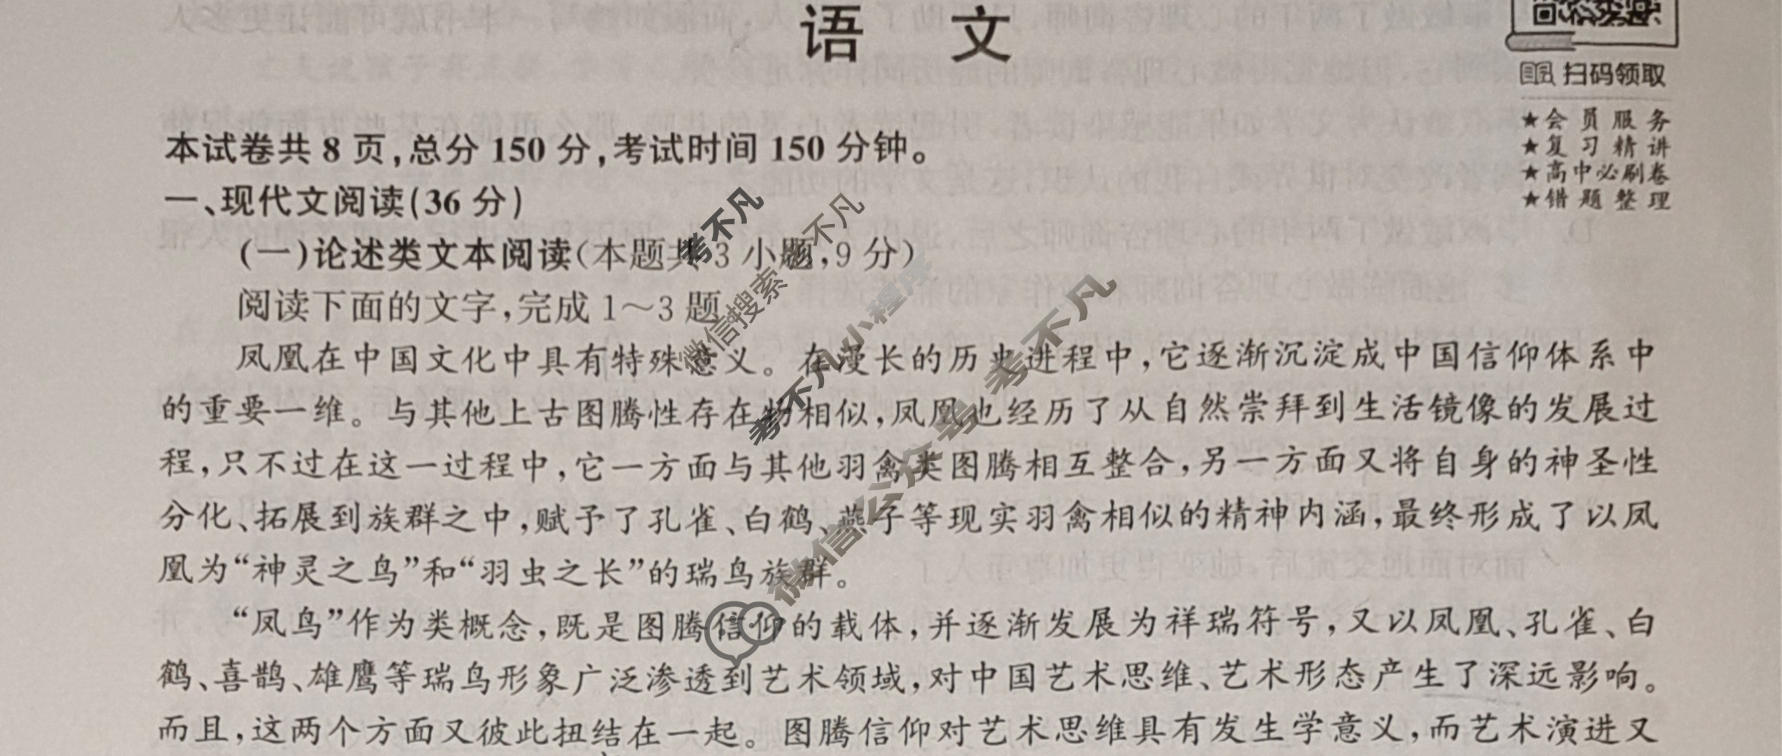 语 文
扫码领取
★会员服务
★复习精讲
★高中必刷卷
★错题整理
本试卷共 8 页,总分 150 分,考试时间 150 分钟。
一、现代文阅读(36 分)
(一)论述类文本阅读(本题共 3 小题,9 分)
阅读下面的文字,完成 1～3 题
凤凰在中国文化中具有特殊意义。在漫长的历史进程中,它逐渐沉淀成中国信仰体系中
的重要一维。与其他上古图腾性存在物相似,凤凰也经历了从自然崇拜到生活镜像的发展过
程,只不过在这一过程中,它一方面与其他羽禽类图腾相互整合,另一方面又将自身的神圣性
分化、拓展到族群之中,赋予了孔雀、白鹤、燕子等现实羽禽相似的精神内涵,最终形成了以凤
凰为“神灵之鸟”和“羽虫之长”的瑞鸟族群。
“凤鸟”作为类概念,既是图腾信仰的载体,并逐渐发展为祥瑞符号,又以凤凰、孔雀、白
鹤、喜鹊、雄鹰等瑞鸟形象广泛渗透到艺术领域,对中国艺术思维、艺术形态产生了深远影响。
而且,这两个方面又彼此扭结在一起。图腾信仰对艺术思维具有发生学意义,而艺术演进又
考不凡
微信搜索 考不凡
考不凡小程序
微信公众号 考不凡